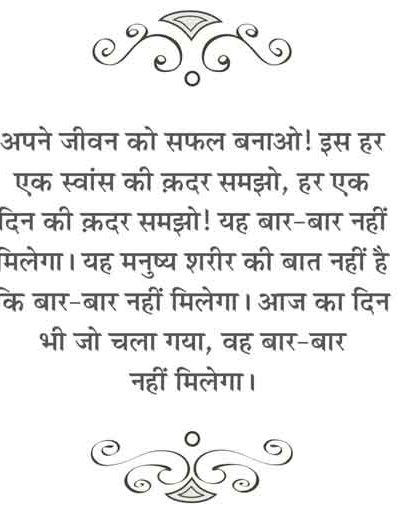 अपने जीवन को सफल बनाओ! इस हर
एक स्वांस की क़दर समझो, हर एक
दिन की क़दर समझो! यह बार-बार नहीं
मिलेगा। यह मनुष्य शरीर की बात नहीं है
कि बार-बार नहीं मिलेगा। आज का दिन
भी जो चला गया, वह बार-बार
नहीं मिलेगा।